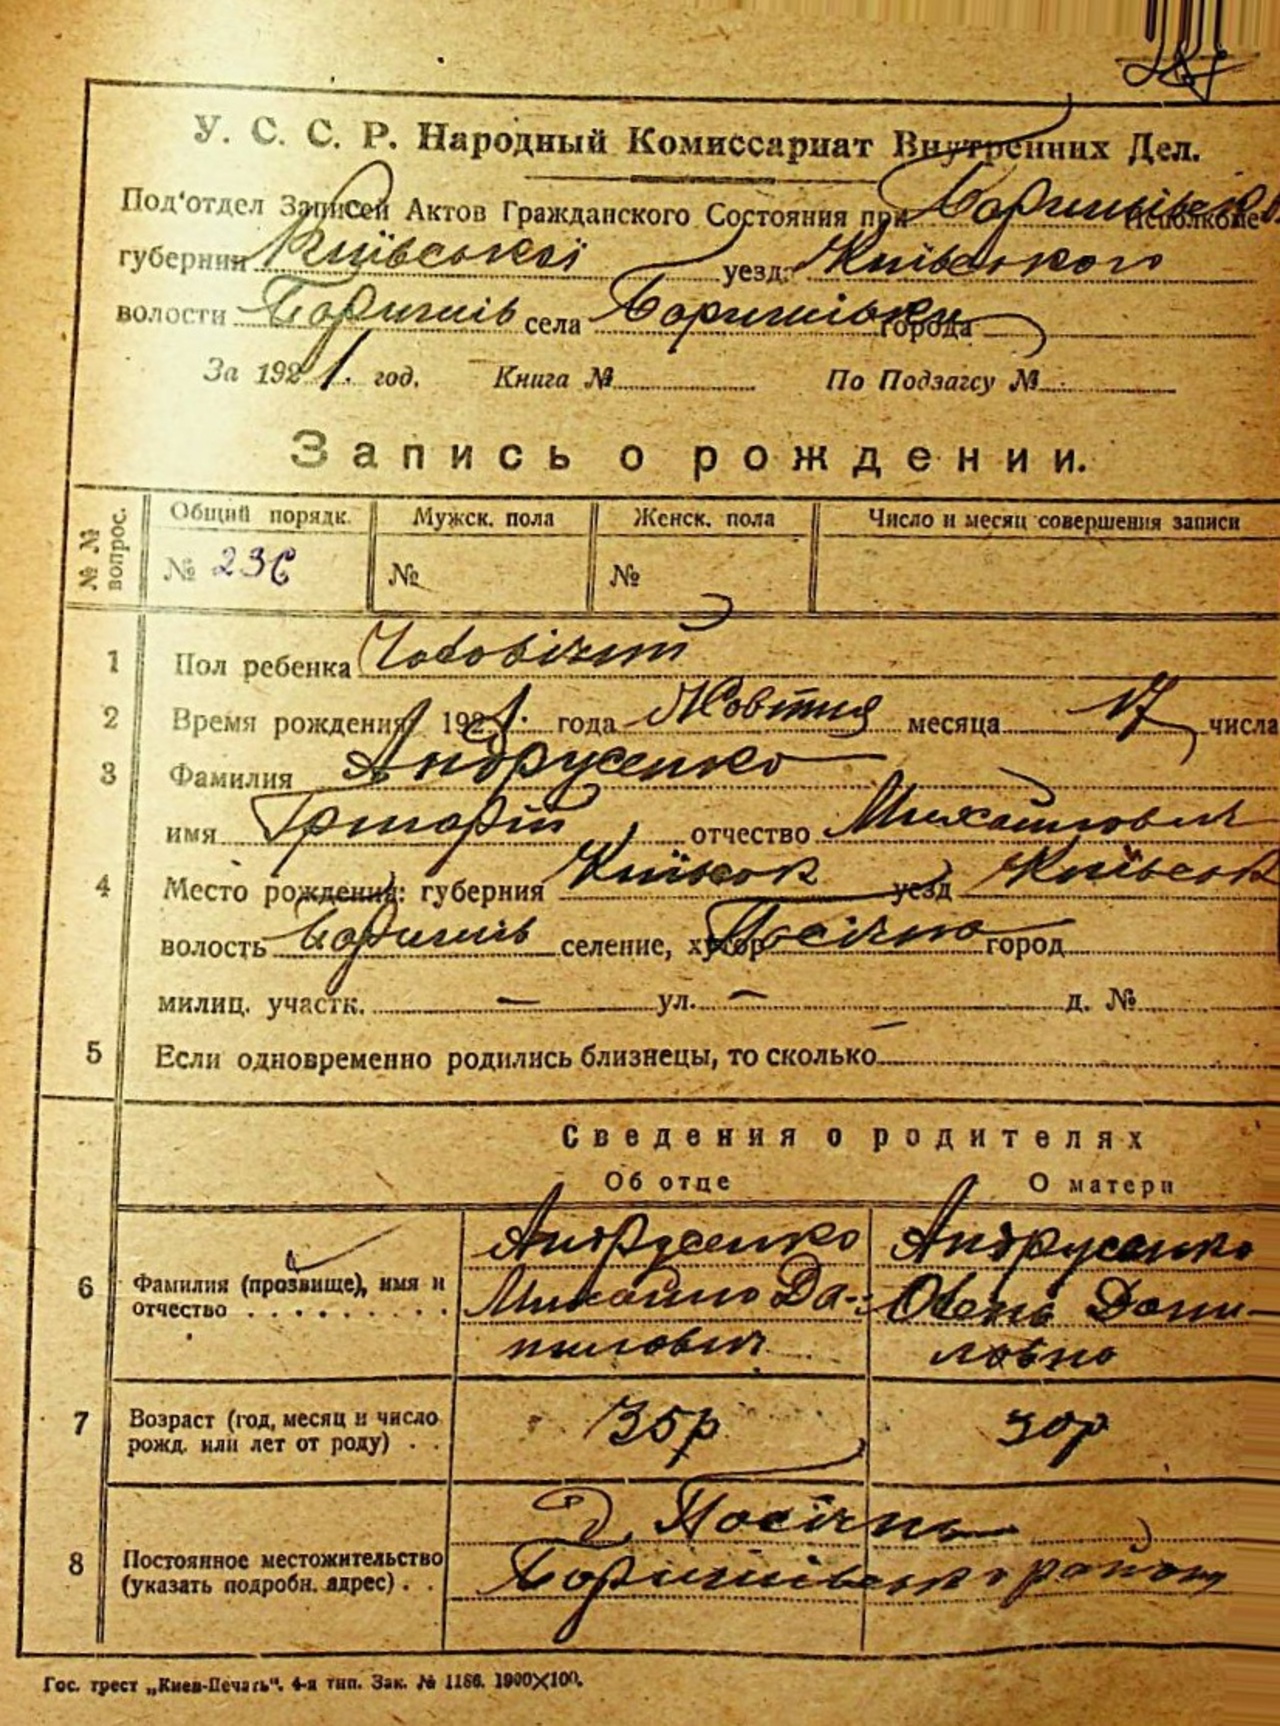 У. С. С. Р. Народный Комиссариат Внутренних Дел.
Под'отдел Записей Актов Гражданского Состояния при Исполкоме
губернии Київської уезд. Київського
волости села города
За 1921. год. Книга № По Подзагсу №
Запись о рождении.
№ № вопрос. Общий порядк. Мужск. пола Женск. пола Число и месяц совершения записи
№ 236 № №
1 Пол ребенка Чоловічий
2 Время рождения 1921. года Жовтня месяца 17 числа
3 Фамилия Андрусенко
имя Григорій отчество Михайлович
4 Место рождения: губерния Київськ уезд Київськ
волость селение, хутор город
милиц. участк. — ул. — д. №
5 Если одновременно родились близнецы, то сколько
Сведения о родителях
Об отце О матери
6 Фамилия (прозвище), имя и отчество
Андрусенко Андрусенко
Михайло Да-
нилович Дани-
ловна
7 Возраст (год, месяц и число рожд. или лет от роду) 35р 30р
8 Постоянное местожительство (указать подробн. адрес)
району
Гос. трест „Киев-Печать“. 4-я тип. Зак. № 1186. 1900×100.